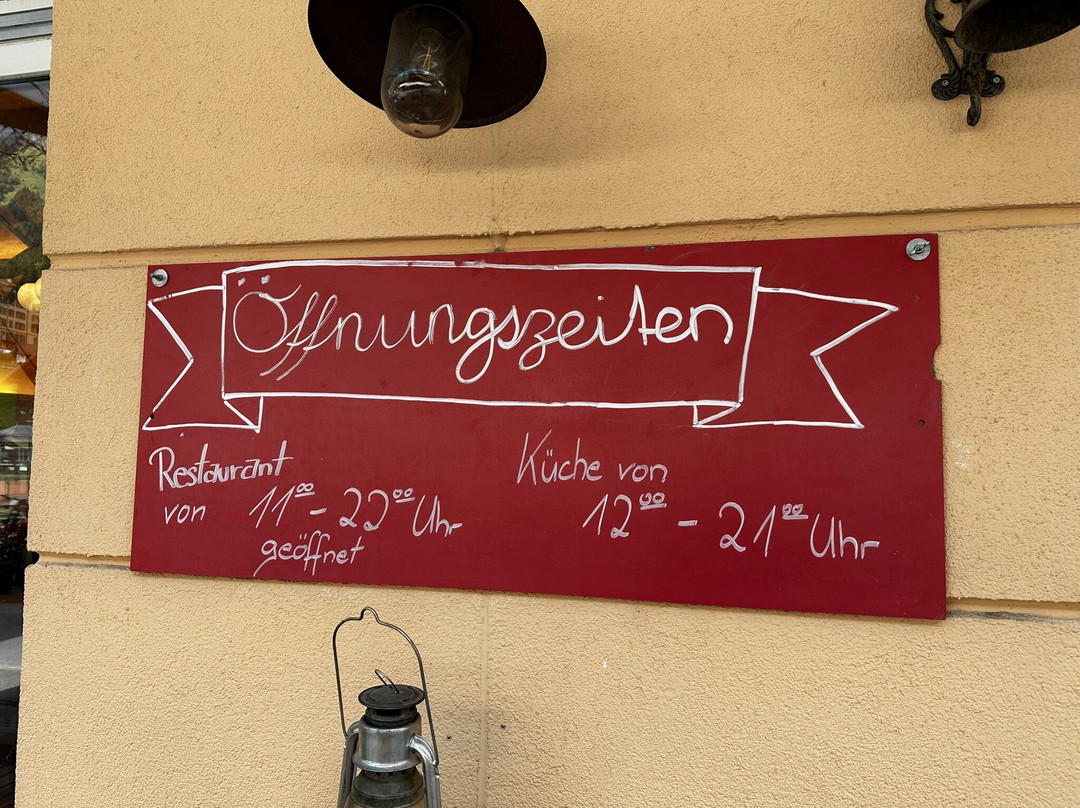 Öffnungszeiten
Restaurant
von 11⁰⁰ - 22⁰⁰ Uhr
geöffnet
Küche von
12⁰⁰ - 21⁰⁰ Uhr